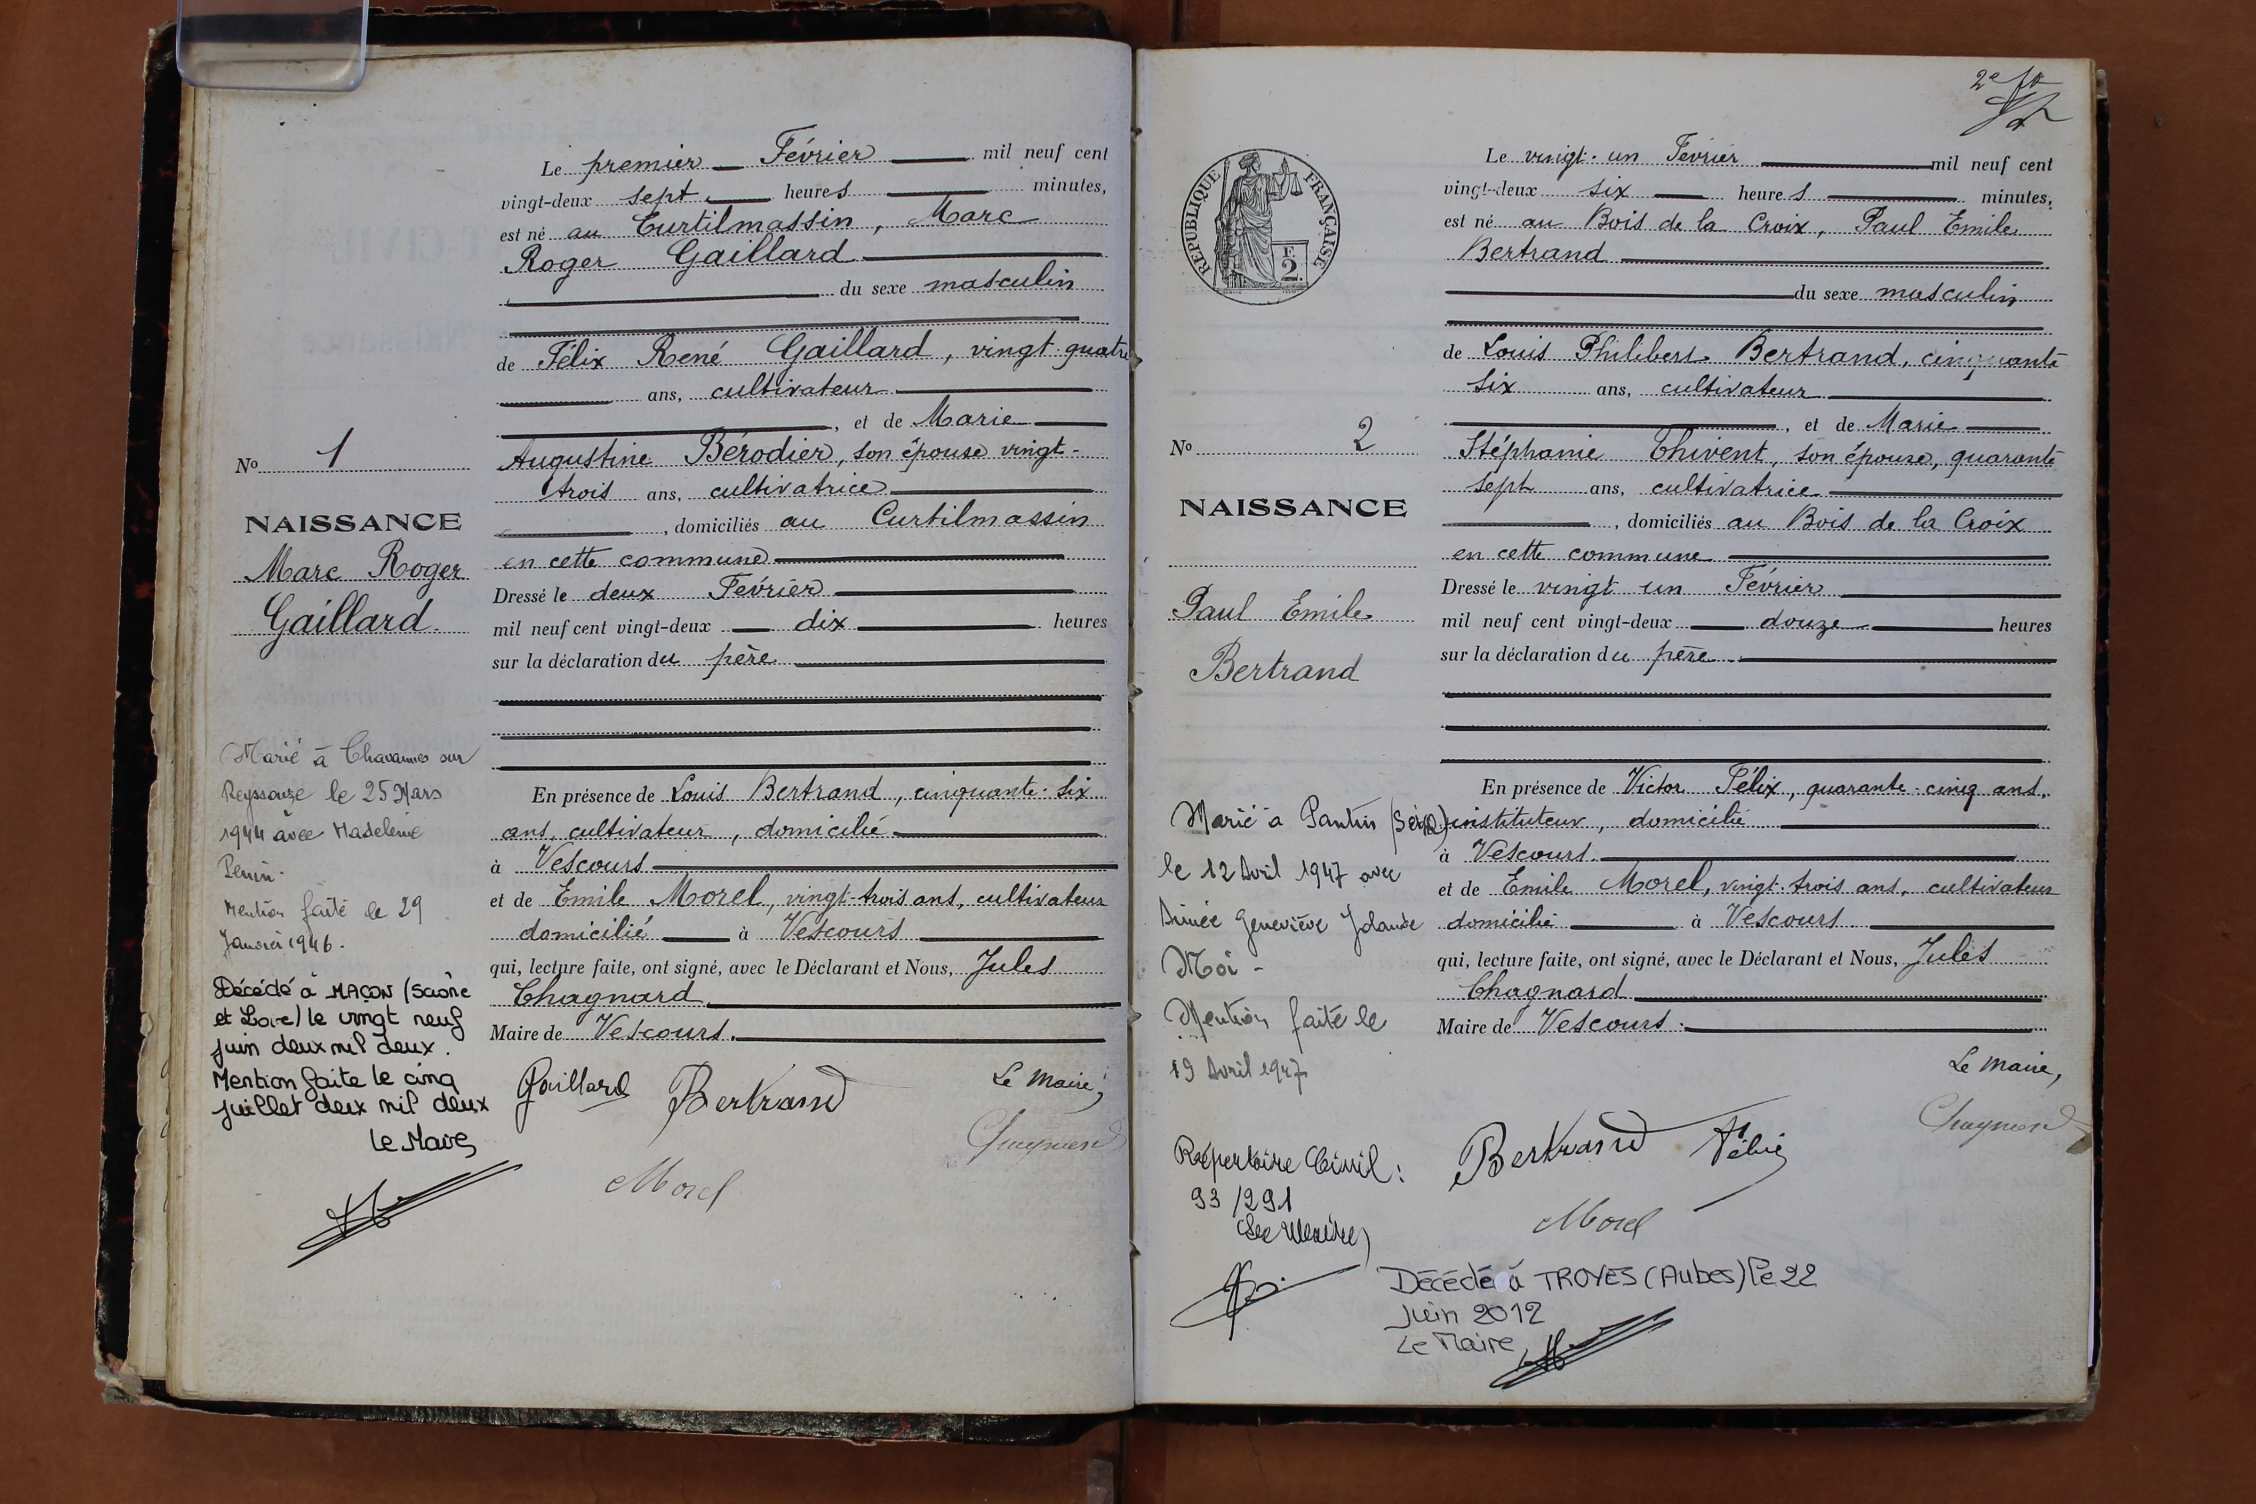 Le premier Février mil neuf cent
vingt-deux sept heures minutes,
est né au Curtilmassin, Marc
Roger Gaillard
du sexe masculin
de Félix René Gaillard, vingt-quatre
ans, cultivateur
, et de Marie
Augustine Bérodier, son épouse vingt-
trois ans, cultivatrice
, domiciliés au Curtilmassin
en cette commune
Dressé le deux Février
mil neuf cent vingt-deux dix heures
sur la déclaration du père
En présence de Louis Bertrand, cinquante-six
ans, cultivateur, domicilié
à Vescours
et de Emile Morel, vingt-trois ans, cultivateur
domicilié à Vescours
qui, lecture faite, ont signé, avec le Déclarant et Nous, Jules
Chagnard
Maire de Vescours.
Gaillard Bertrand Le Maire,
Morel
No 1
NAISSANCE
Marc Roger
Gaillard.
Marié à Chavannes sur
Reyssouze le 25 Mars
1944 avec Madeleine
Penin.
Mention faite le 29
Janvier 1946.
Décédé à MAÇON (Saône
et Loire) le vingt neuf
juin deux mil deux.
Mention faite le cinq
juillet deux mil deux
Le Maire,
2e
RÉPUBLIQUE FRANÇAISE
F.
2
Le vingt-un Février mil neuf cent
vingt-deux six heures minutes,
est né au Bois de la Croix, Paul Emile
Bertrand
du sexe masculin
de Louis Philibert Bertrand, cinquante
six ans, cultivateur
, et de Marie
Stéphanie Thivent, son épouse, quarante
sept ans, cultivatrice
, domiciliés au Bois de la Croix
en cette commune
Dressé le vingt un Février
mil neuf cent vingt-deux douze heures
sur la déclaration du père
En présence de Victor Félix, quarante-cinq ans,
instituteur, domicilié
à Vescours
et de Emile Morel, vingt-trois ans, cultivateur
domicilié à Vescours
qui, lecture faite, ont signé, avec le Déclarant et Nous, Jules
Chagnard
Maire de Vescours.
Le Maire,
Bertrand Félix
Morel
No 2
NAISSANCE
Paul Emile
Bertrand
Marié à Pantin (Seine)
le 12 Avril 1947 avec
Aimée Geneviève Yolande
Moi -
Mention faite le
19 Avril 1947
Répertoire Civil :
93/291
Le Maire,
Décédé à TROYES (Aubes) le 22
Juin 2012
Le Maire,